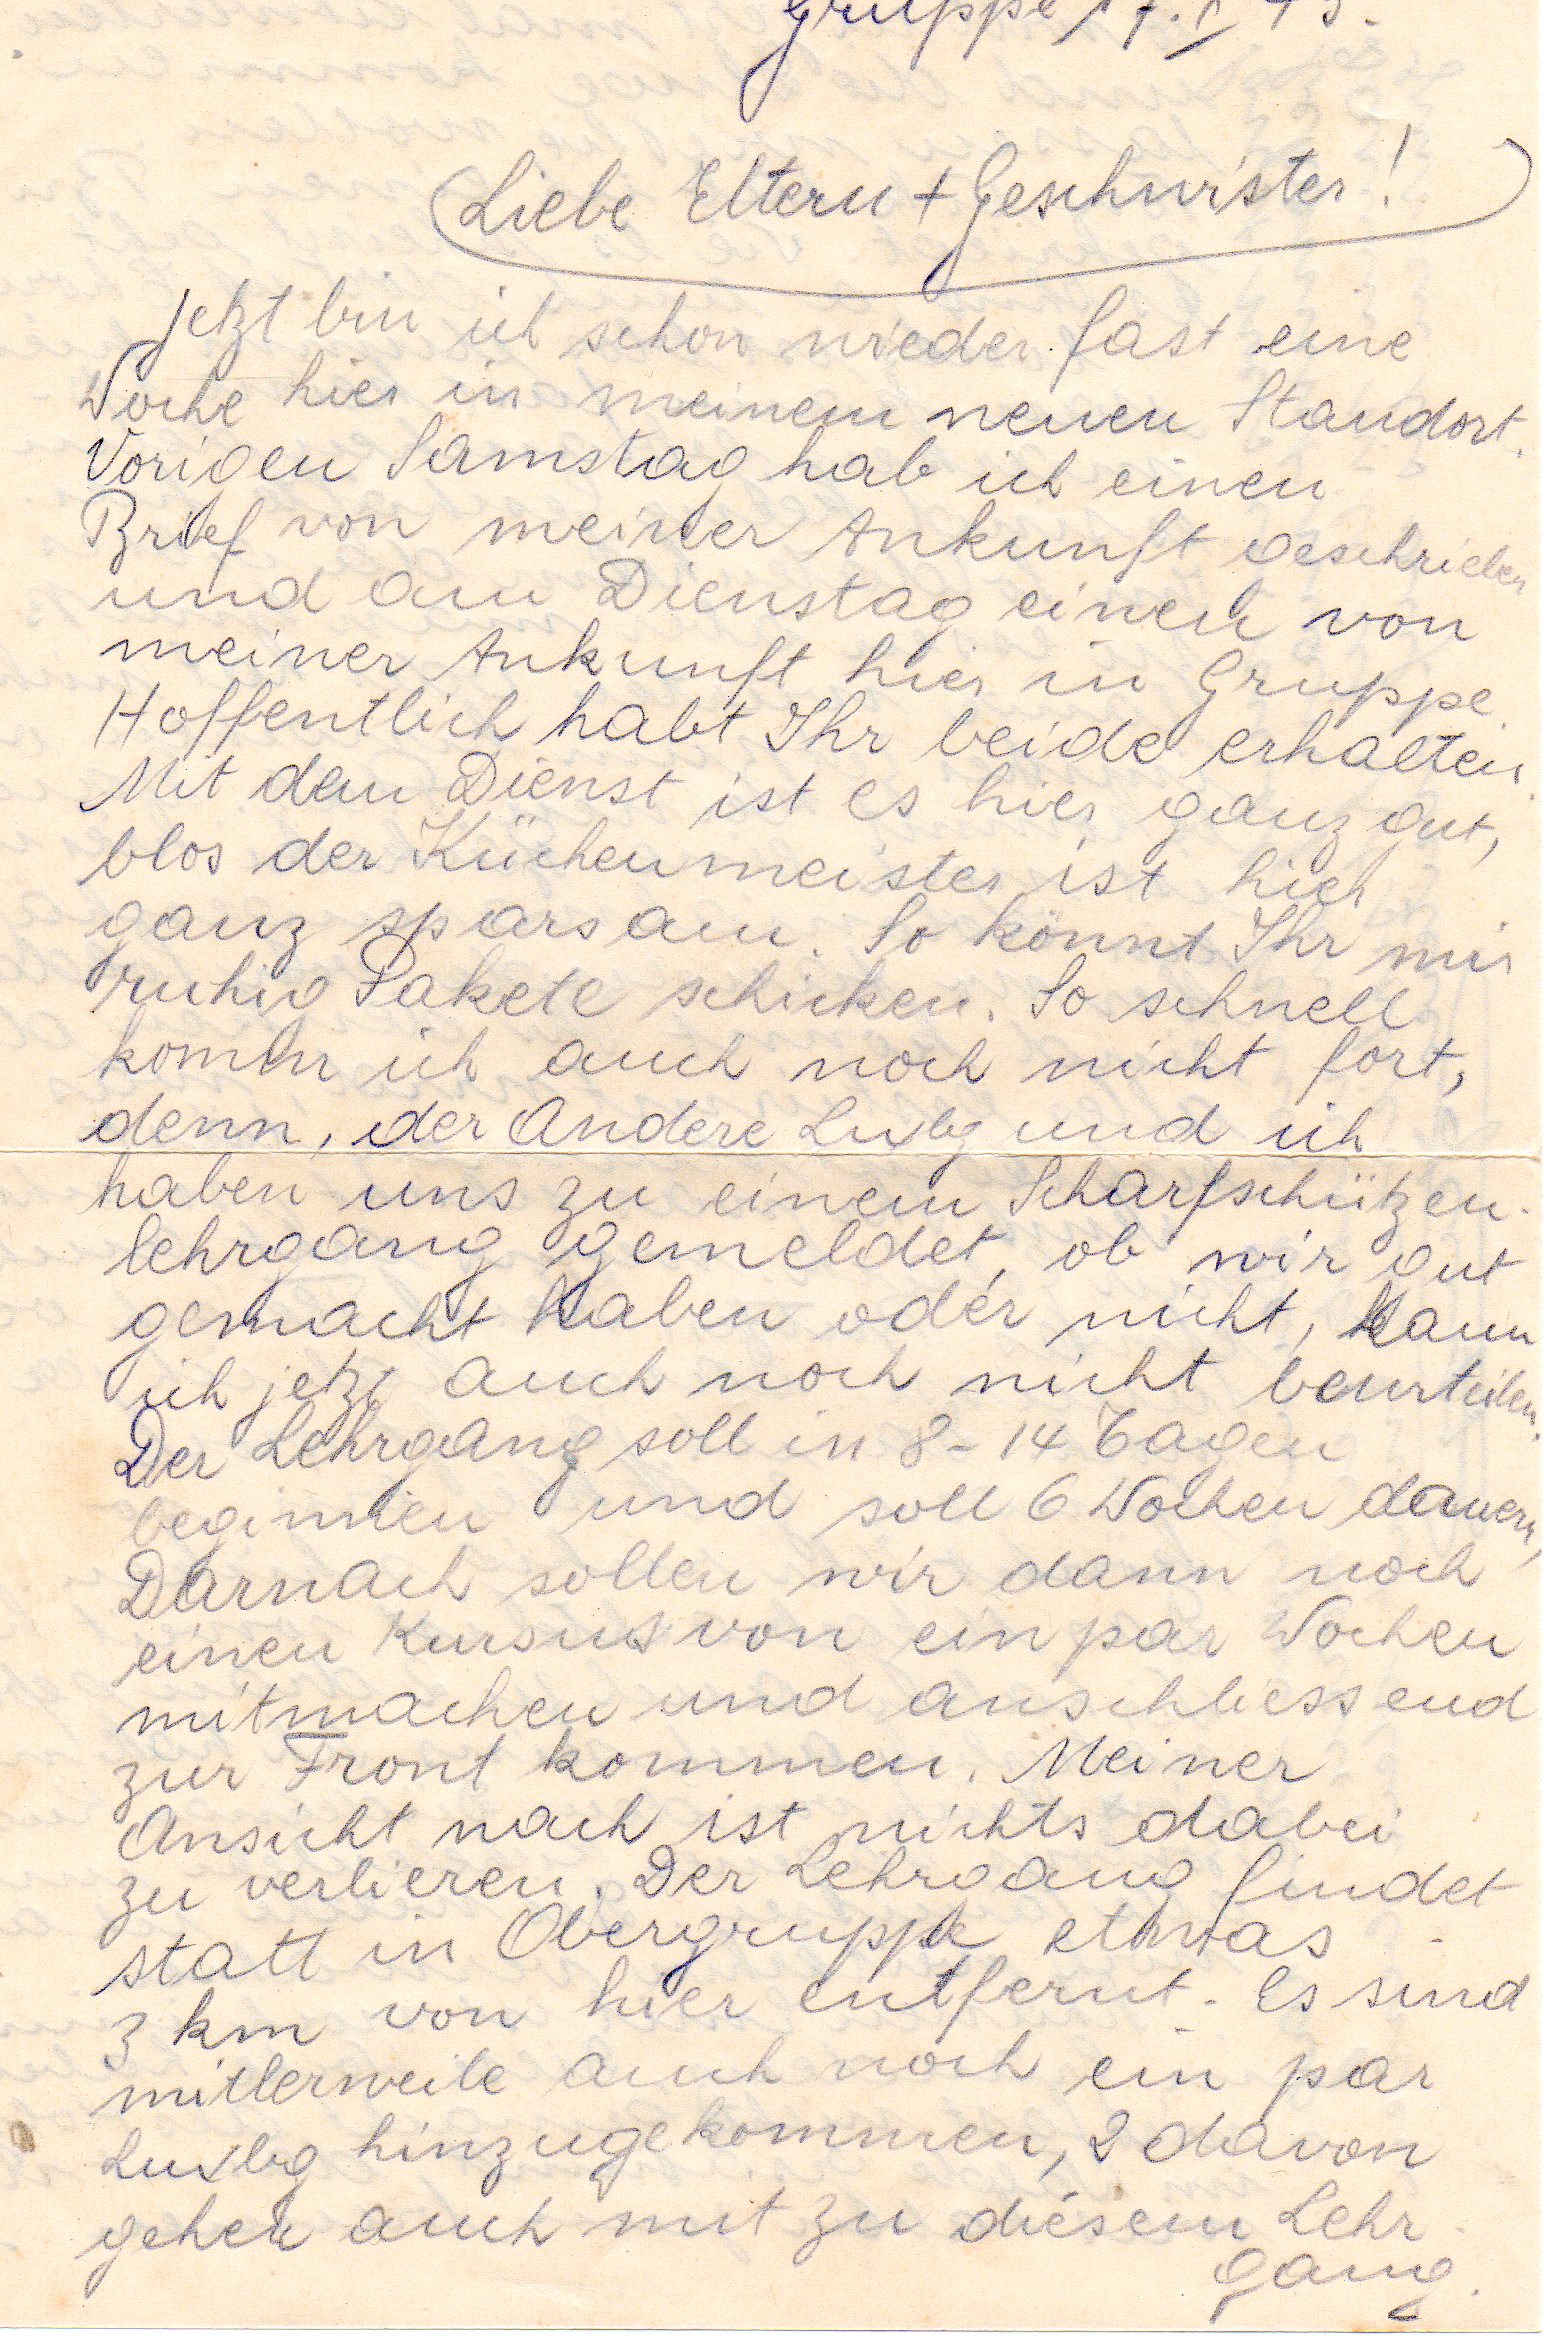 Gruppe 17. I 43.
Liebe Eltern + Geschwister!
Jetzt bin ich schon wieder fast eine
Woche hier in meinem neuen Standort.
Vorigen Samstag hab ich einen
Brief von meiner Ankunft geschrieben
und am Dienstag einen von
meiner Ankunft hier in Gruppe.
Hoffentlich habt Ihr beide erhalten.
Mit dem Dienst ist es hier ganz gut,
blos der Küchenmeister ist hier
ganz sparsam. So könnt Ihr mir
ruhig Pakete schicken. So schnell
komm ich auch noch nicht fort,
denn, der Andere Luxbg und ich
haben uns zu einem Scharfschützen-
lehrgang gemeldet, ob wir gut
gemacht haben oder nicht, kann
ich jetzt auch noch nicht beurteilen.
Der Lehrgang soll in 8-14 Tagen
beginnen und soll 6 Wochen dauern,
Darnach sollen wir dann noch
einen Kursus von ein par Wochen
mitmachen und anschliessend
zur Front kommen. Meiner
Ansicht nach ist nichts dabei
zu verlieren. Der Lehrgang findet
statt in Obergruppe etwas
3 km von hier entfernt. Es sind
mitlerweile auch noch ein par
Luxbg hinzugekommen, 2 davon
gehen auch mit zu diesem Lehr-
gang.